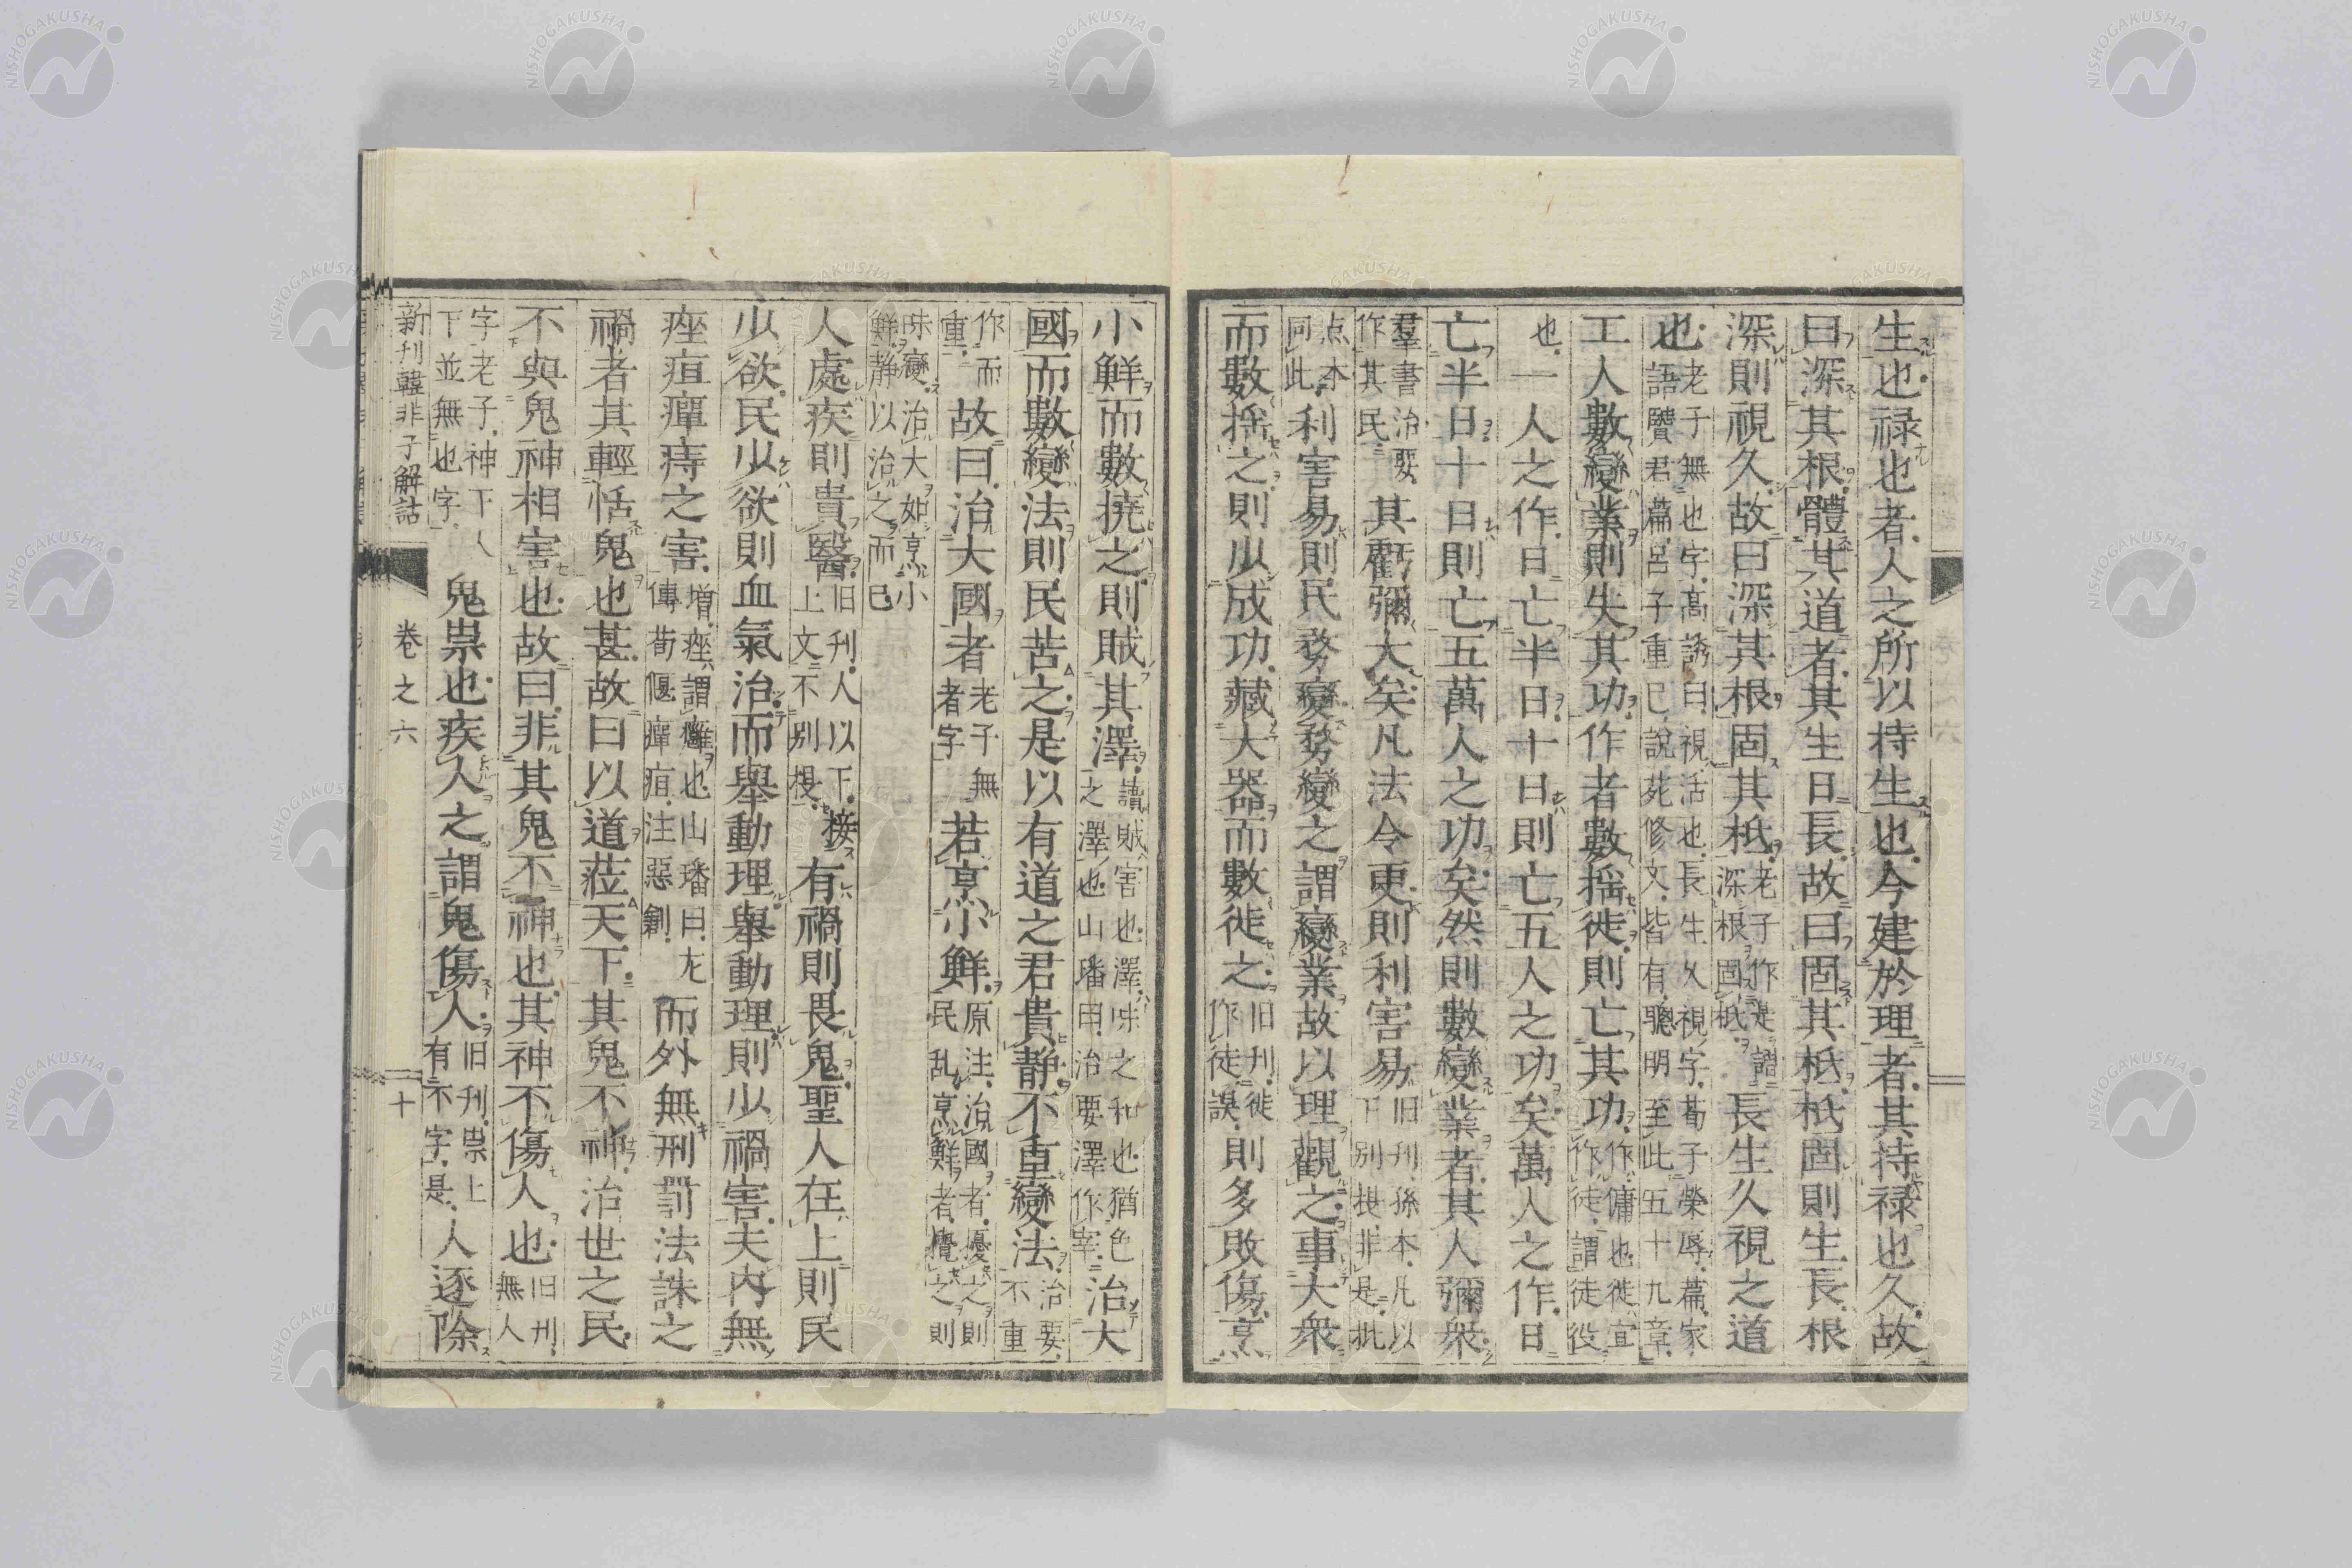 生也祿也者人之所以持生也今建於理者其持祿也久故
曰深其根體其道者其生日長故曰固其柢柢固則生長根
深則視久故曰深其根固其柢老子作是謂深根固柢長生久視之道
也老子無也字高誘曰視活也長生久視字荀子榮辱篇家語賢君篇呂子重己說苑修文皆有聰明至此五十九章
工人數變業則失其功作者數搖徙則亡其功作傭也徙宜作徒謂徒役
也一人之作日亡半日十日則亡五人之功矣萬人之作日
亡半日十日則亡五萬人之功矣然則數變業者其人彌眾
羣書治要作其民其虧彌大矣凡法令更則利害易旧刊孫本凡以下別提非是批
点本同此利害易則民務變務變之謂變業故以理觀之事大眾
而數搖之則少成功藏大器而數徙之旧刊徙作徒誤則多敗傷烹
小鮮而數撓之則賊其澤讀賊害也澤味之和也猶色之澤也山璠曰治要澤作宰治大
國而數變法則民苦之是以有道之君貴靜不重變法治要不重
作而重故曰治大國者老子無者字若烹小鮮原注治國者擾之則民乱烹鮮者攪之則
味變治大如烹小鮮静以治之而已
人處疾則貴醫旧刊人以下接上文不別提有禍則畏鬼聖人在上則民
少欲民少欲則血氣治而舉動理舉動理則少禍害夫內無
痤疽癉痔之害增痤謂癰也山璠曰尢傳荀偃癉疽注惡創而外無刑罰法誅之
禍者其輕恬鬼也甚故曰以道莅天下其鬼不神治世之民
不與鬼神相害也故曰非其鬼不神也其神不傷人也旧刊無人
字老子神下人下並無也字鬼祟也疾人之謂鬼傷人旧刊祟上有不字是人逐除
新刊韓非子解詁 卷之六 二十
NISHOGAKUSHA